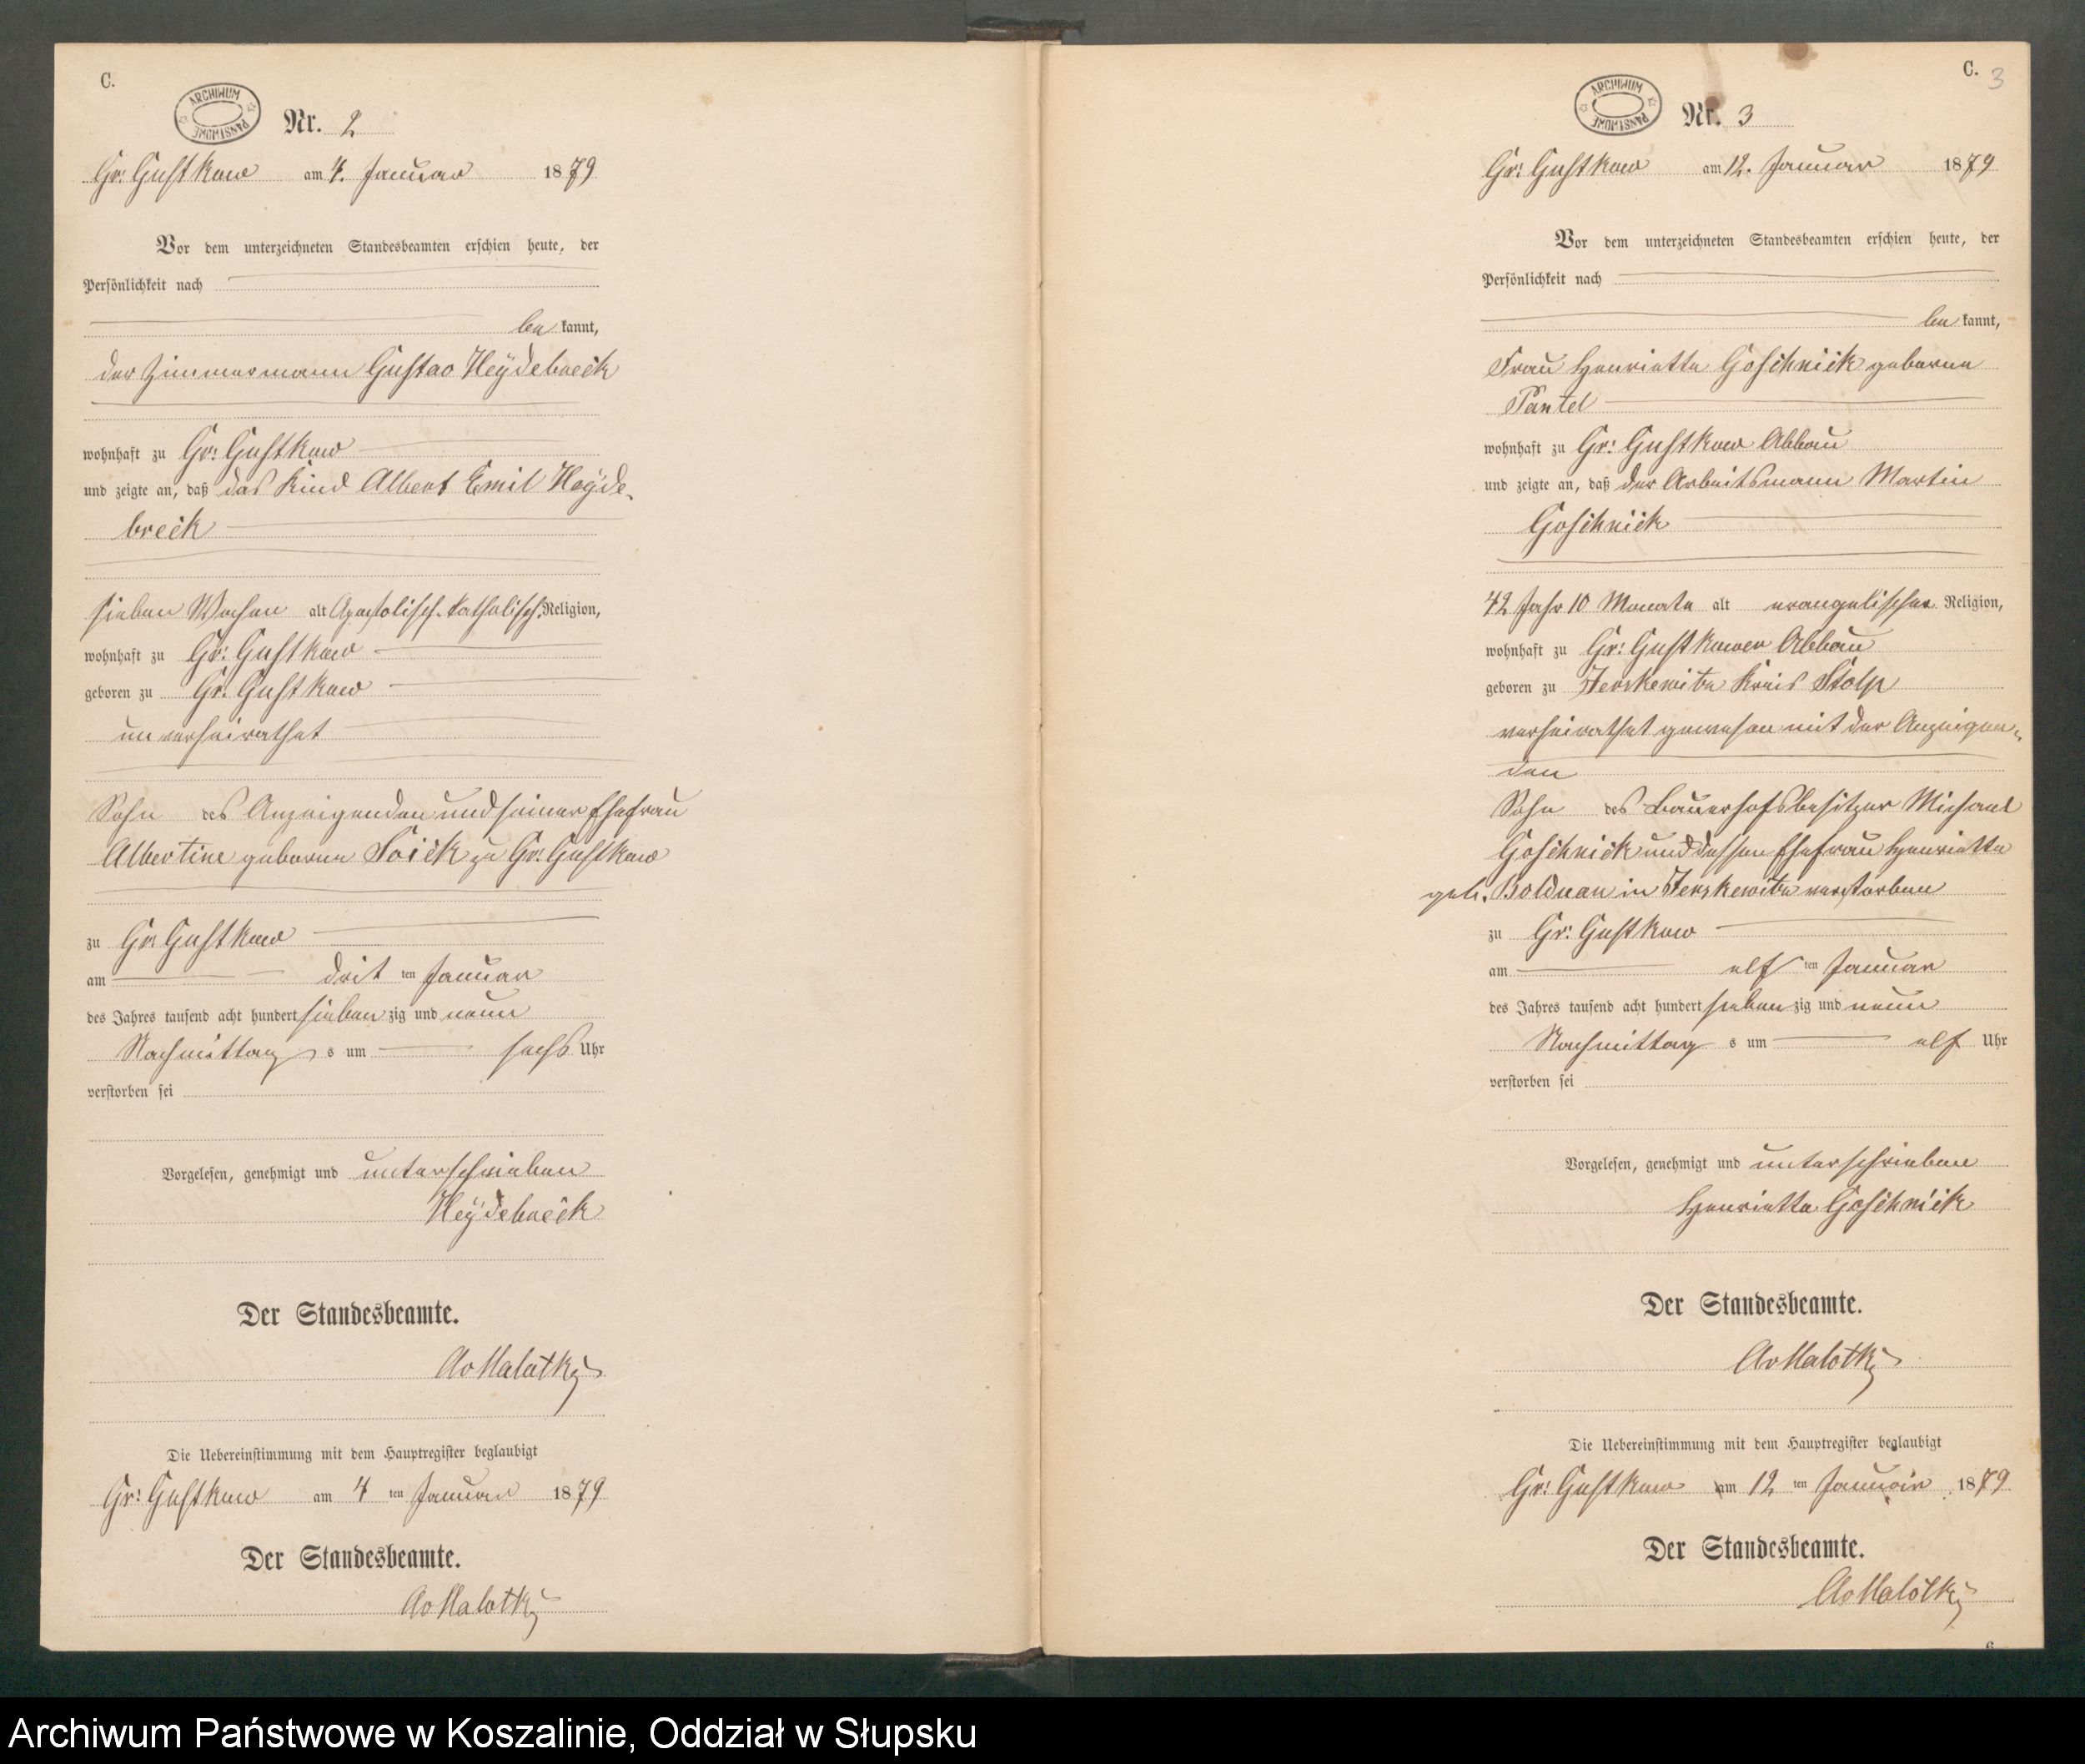 C.
ARCHIWUM PAŃSTWOWE
Nr. 2
Gr: Gustkow am 4. Januar 1879
Vor dem unterzeichneten Standesbeamten erschien heute, der
Persönlichkeit nach
be kannt,
der Zimmermann Gustav Heÿdebreck
wohnhaft zu Gr: Gustkow
und zeigte an, daß das Kind Albert Emil Heÿde-
breck
sieben Wochen alt Apostolisch-katholisch. Religion,
wohnhaft zu Gr: Gustkow
geboren zu Gr. Gustkow
unverheirathet
Sohn des Anzeigenden und seiner Ehefrau
Albertine geborne Foick zu Gr: Gustkow
zu Gr: Gustkow
am drit ten Januar
des Jahres tausend acht hundert sieben zig und neun
Nachmittag s um sechs Uhr
verstorben sei
Vorgelesen, genehmigt und unterschrieben
Heÿdebreck
Der Standesbeamte.
AvMalotky
Die Uebereinstimmung mit dem Hauptregister beglaubigt
Gr: Gustkow am 4 ten Januar 1879
Der Standesbeamte.
AvMalotky
C. 3
ARCHIWUM PAŃSTWOWE
Nr. 3
Gr: Gustkow am 12. Januar 1879
Vor dem unterzeichneten Standesbeamten erschien heute, der
Persönlichkeit nach
be kannt,
Frau Henriette Goschnick geborne
Pantel
wohnhaft zu Gr: Gustkow Abbau
und zeigte an, daß der Arbeitsmann Martin
Goschnick
42 Jahr 10 Monate alt evangelischer Religion,
wohnhaft zu Gr: Gustkower Abbau
geboren zu Jerskewitz Kreis Stolp
verheirathet gewesen mit der Anzeigen-
den
Sohn des Bauerhofsbesitzer Michael
Goschnick und dessen Ehefrau Henriette
geb. Bolduan in Jerskewitz verstorben
zu Gr: Gustkow
am elf ten Januar
des Jahres tausend acht hundert sieben zig und neun
Nachmittag s um elf Uhr
verstorben sei
Vorgelesen, genehmigt und unterschrieben
Henriette Goschnick
Der Standesbeamte.
AvMalotky
Die Uebereinstimmung mit dem Hauptregister beglaubigt
Gr: Gustkow am 12 ten Januar 1879
Der Standesbeamte.
AvMalotky
6
Archiwum Państwowe w Koszalinie, Oddział w Słupsku